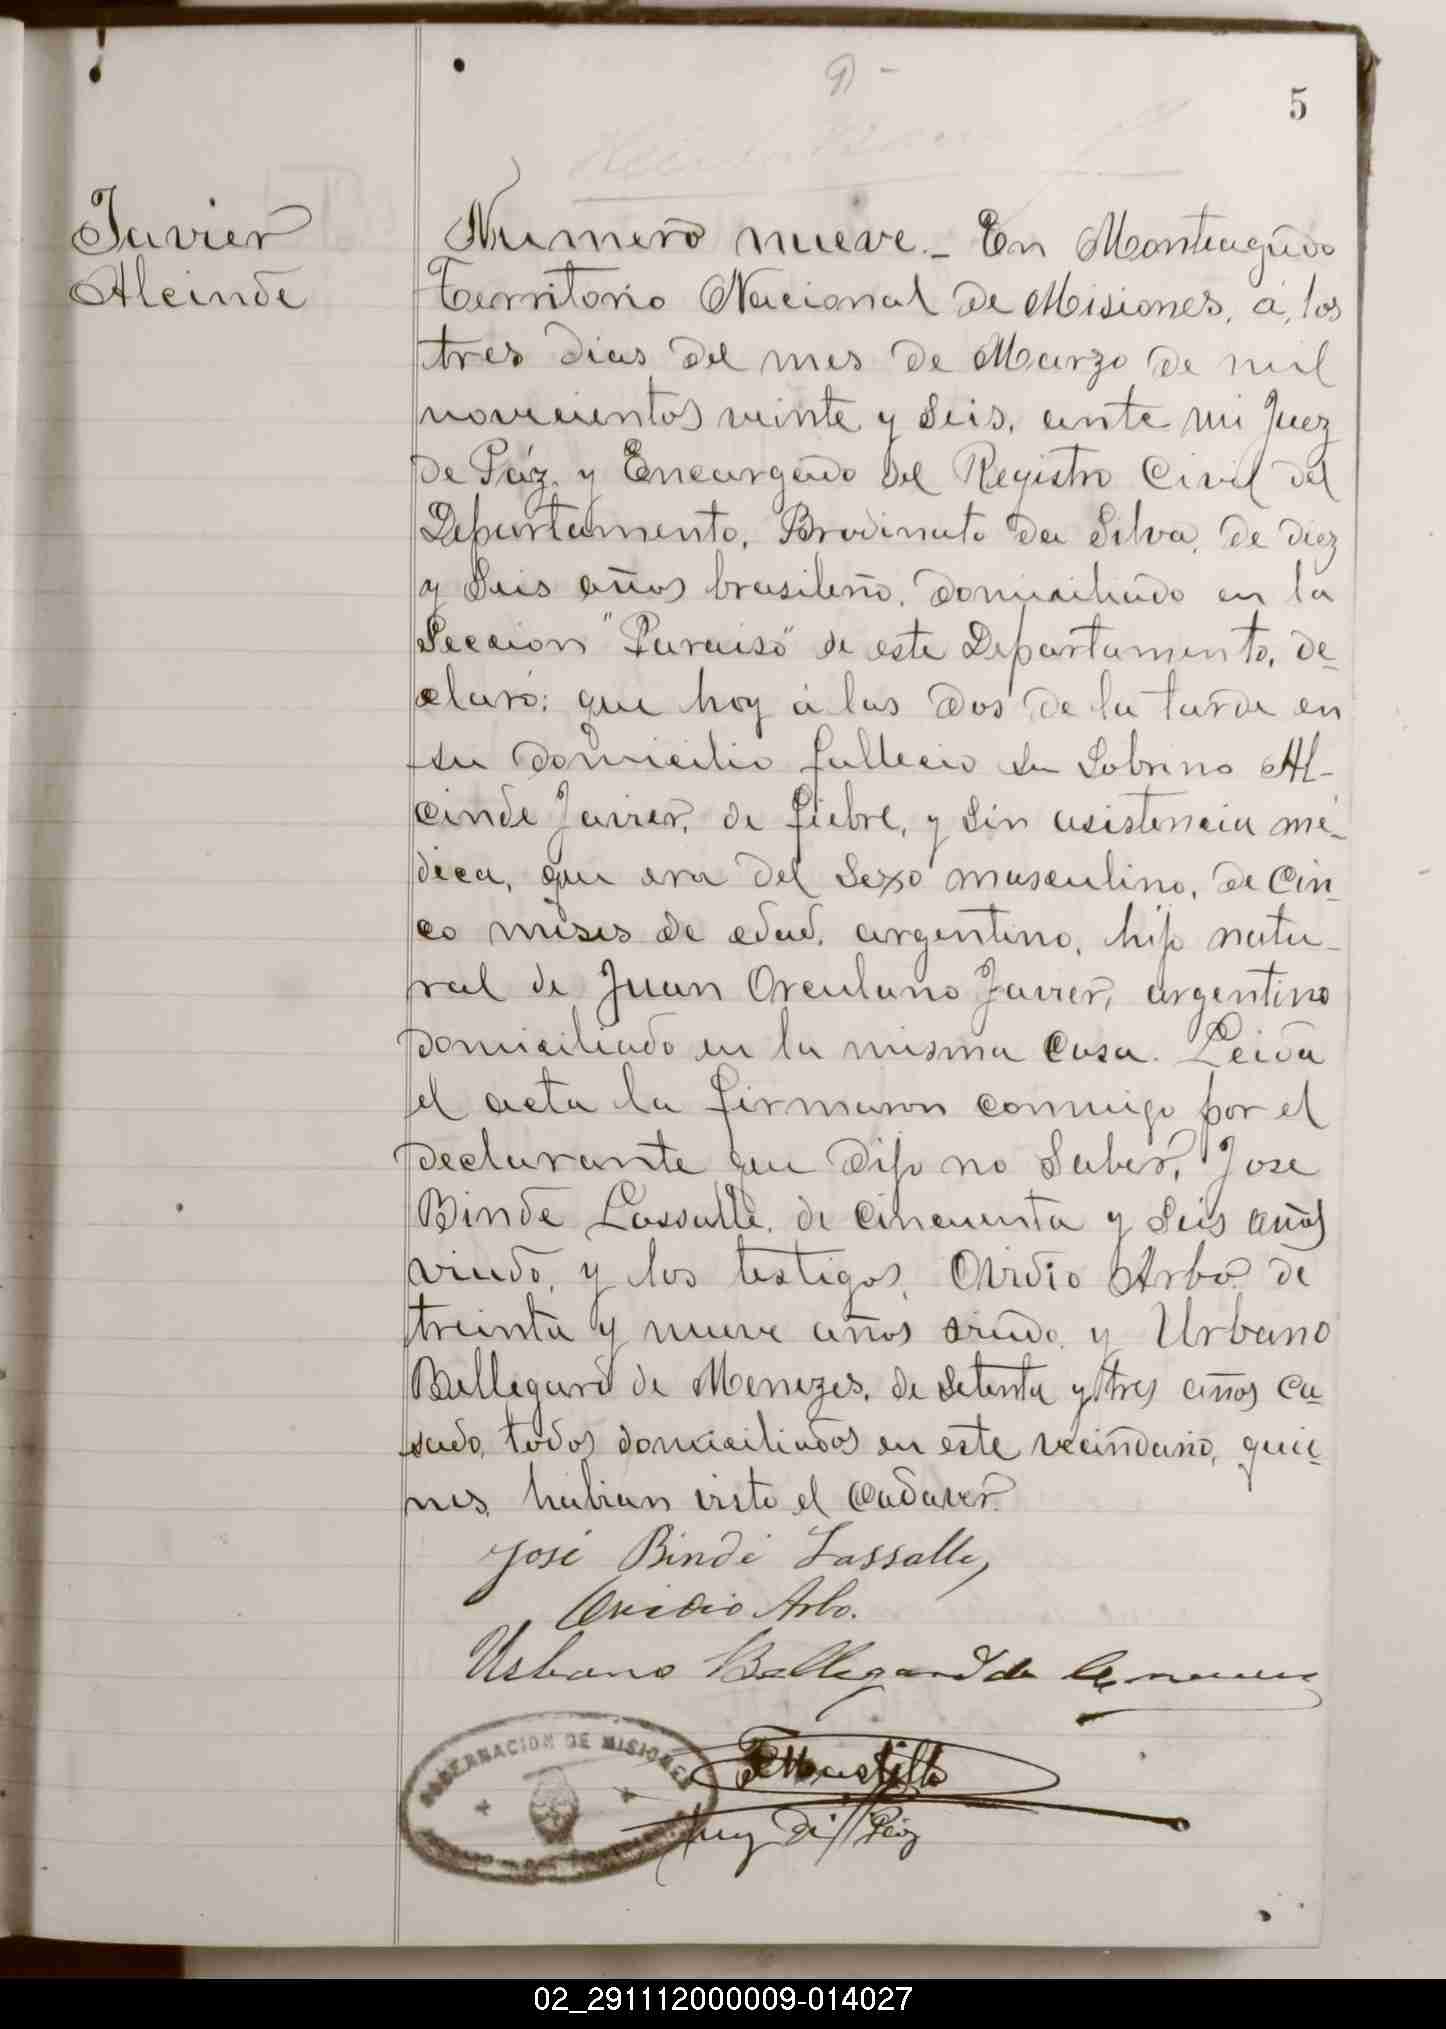 9 -
5
Javier
Alcinde
Numero nueve._ En Monteagudo
Territorio Nacional de Misiones, á, los
tres dias del mes de Marzo de mil
novecientos veinte y seis, ante mi Juez
de Páz, y Encargado del Registro Civil del
Departamento, Brodinato da Silva, de diez
y seis años brasileño, domiciliado en la
Seccion "Paraiso" de este Departamento, de-
claró: que hoy á las dos de la tarde en
su domicilio fallecio su Sobrino Al-
cinde Javier, de fiebre, y sin asistencia mé-
dica, que era del Sexo masculino, de cin-
co meses de edad, argentino, hijo natu-
ral de Juan Orculano Javier, argentino
domiciliado en la misma casa. Leida
el acta la firmaron conmigo por el
declarante que dijo no Saber, Jose
Binde Lassalle, de cincuenta y seis años
viudo, y los testigos, Ovidio Arbo, de
treinta y nueve años viudo, y Urbano
Bellegard de Menezes, de setenta y tres años ca-
sado, todos domiciliados en este vecindario, quie-
nes, habian visto el cadaver.
José Binde Lassalle
Ovidio Arbo.
Urbano Bellegard de
GOBERNACION DE MISIONES
Juez de Paz
02_291112000009-014027